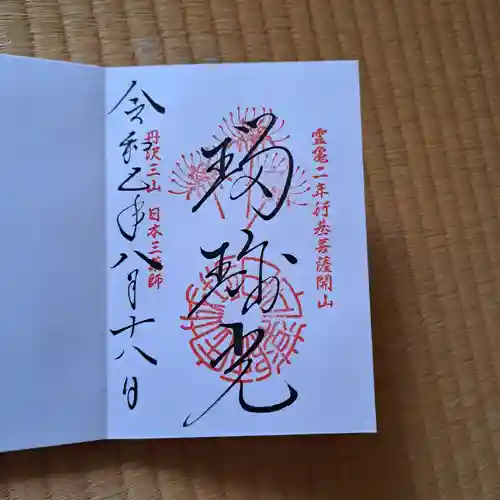 霊亀二年行基菩薩開山
瑠璃光
丹沢三山 日本三薬師
令和乙年八月十八日